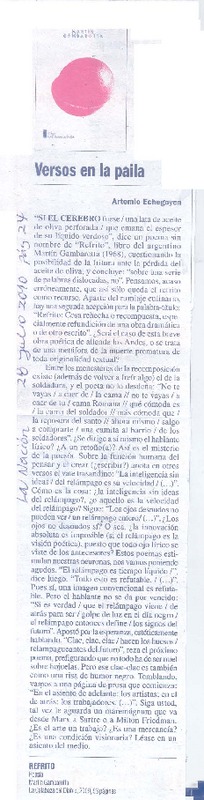 MARTÍN
GAMBAROTTA
Versos en la paila
Artemio Echegoyen
"SI EL CEREBRO fuese / una lata de aceite
de oliva perforada / que emana el espesor
de su líquido verdoso", dice un poema sin
nombre de "Refrito", libro del argentino
Martín Gambarotta (1968), cuestionando la
posibilidad de la fritura ante la pérdida del
aceite de oliva, y concluye: "sobre una serie
de palabras dislocadas, no". Pensamos, acaso
erróneamente, que así sólo queda el
como recurso. Aparte del ramaje culinario
hay una segunda acepción para la palabra-título:
"Refrito: Cosa rehecha o recompuesta, espe-
cialmente refundición de una obra dramática
o de otro escrito". ¿Será el caso de esta breve
obra poética de allende los Andes, o se trata
de una metáfora de la muerte prematura de
toda originalidad textual?
Entre los menesteres de la recomposición
existe (además de volver a freír algo) el de la
soldadura, y el poeta no lo desdeña: "No te
vayas a caer de / la cama // no te vayas a /
caer de la / cama Romana // qué cómoda es
/ la carra del soldado // más cómoda que /
la represara del santo // ahora mismo / salgo
a comprarte / una camita al barrio / de los
soldadores". ¿Se dirige a sí mismo el hablante
lírico? ¿A un
de la poesía. Sobre la función humana del
pensar y el crear (¿escribir?) anota en otros
versos el vate trasandino: "La inteligencia sin
ideas / del relámpago es su velocidad / (…)".
Cómo es la cosa: ¿la inteligencia sin ideas
del relámpago?, ¿o aquello es la velocidad
del relámpago? Sigue: "Los ojos desnudos no
pueden ver / un relámpago entero / (…)". ¿Los
ojos no desnudos sí? O sea, ¿la innovación
absoluta es imposible (si el relámpago es la
visión poética), puesto que todo ojo lírico se
viste de los antecesores? Estos poemas esti-
mulan nuestras neuronas, nos vamos poniendo
agudos. "El relámpago es tiempo líquido /",
dice luego. "Todo esto es refutable. / (…)".
Pues sí, una imagen convencional es refuta-
ble. Pero el hablante no se da por vencido:
"Si es verdad / que el relámpago viene / de
atrás para ser / golpe de luz en el día negro /
el relámpago entonces define / los signos del
futuro". Apostó por las esperanza, eutéricamente
hablando. "Clac, clac, clac / hacen los huesos /
relampagueantes del futuro", reza el próximo
poema, prefigurando que no todo ha de ser miel
sobre hojuelas. Pero ese clac-clac es también
como una risa de humor negro. Tomblando,
vamos a una página de prosa que comienza:
"Es el asiento de adelante: los artistas; en el
de atrás: los trabajadores. (…)". Siga usted,
tal vez le aguarda un maremágnum que va
desde Marx a Sartre o a Milton Friedman.
¿Es el arte un trabajo? ¿Es una mercancía?
¿Es una condición visionaria? Léase en un
asiento del medio.
REFRITO
Poesía
Martín Gambarotta
63 páginas
La Nación 26 Julio 2010 pág 24